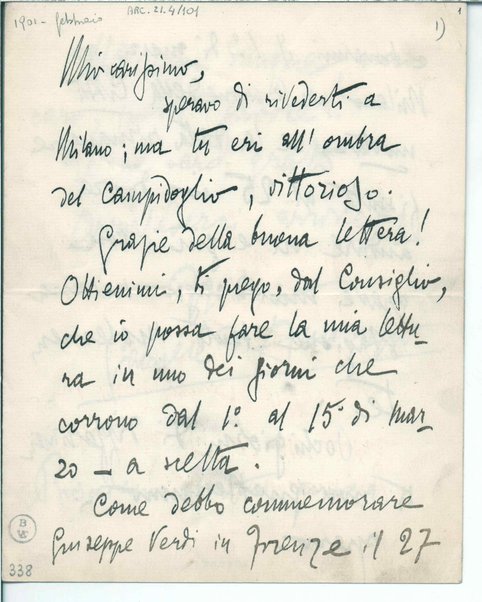 1901 - febbraio
ARC. 21.4/101
1
1)
Mio carissimo,
speravo di rivederti a
Milano; ma tu eri all'ombra
del Campidoglio, vittorioso.
Grazie della buona lettera!
Ottienimi, ti prego, dal Consiglio,
che io possa fare la mia lettu-
ra in uno dei giorni che
corrono dal 1º al 15º di mar-
zo — a scelta.
Come debbo commemorare
Giuseppe Verdi in Firenze il 27
338